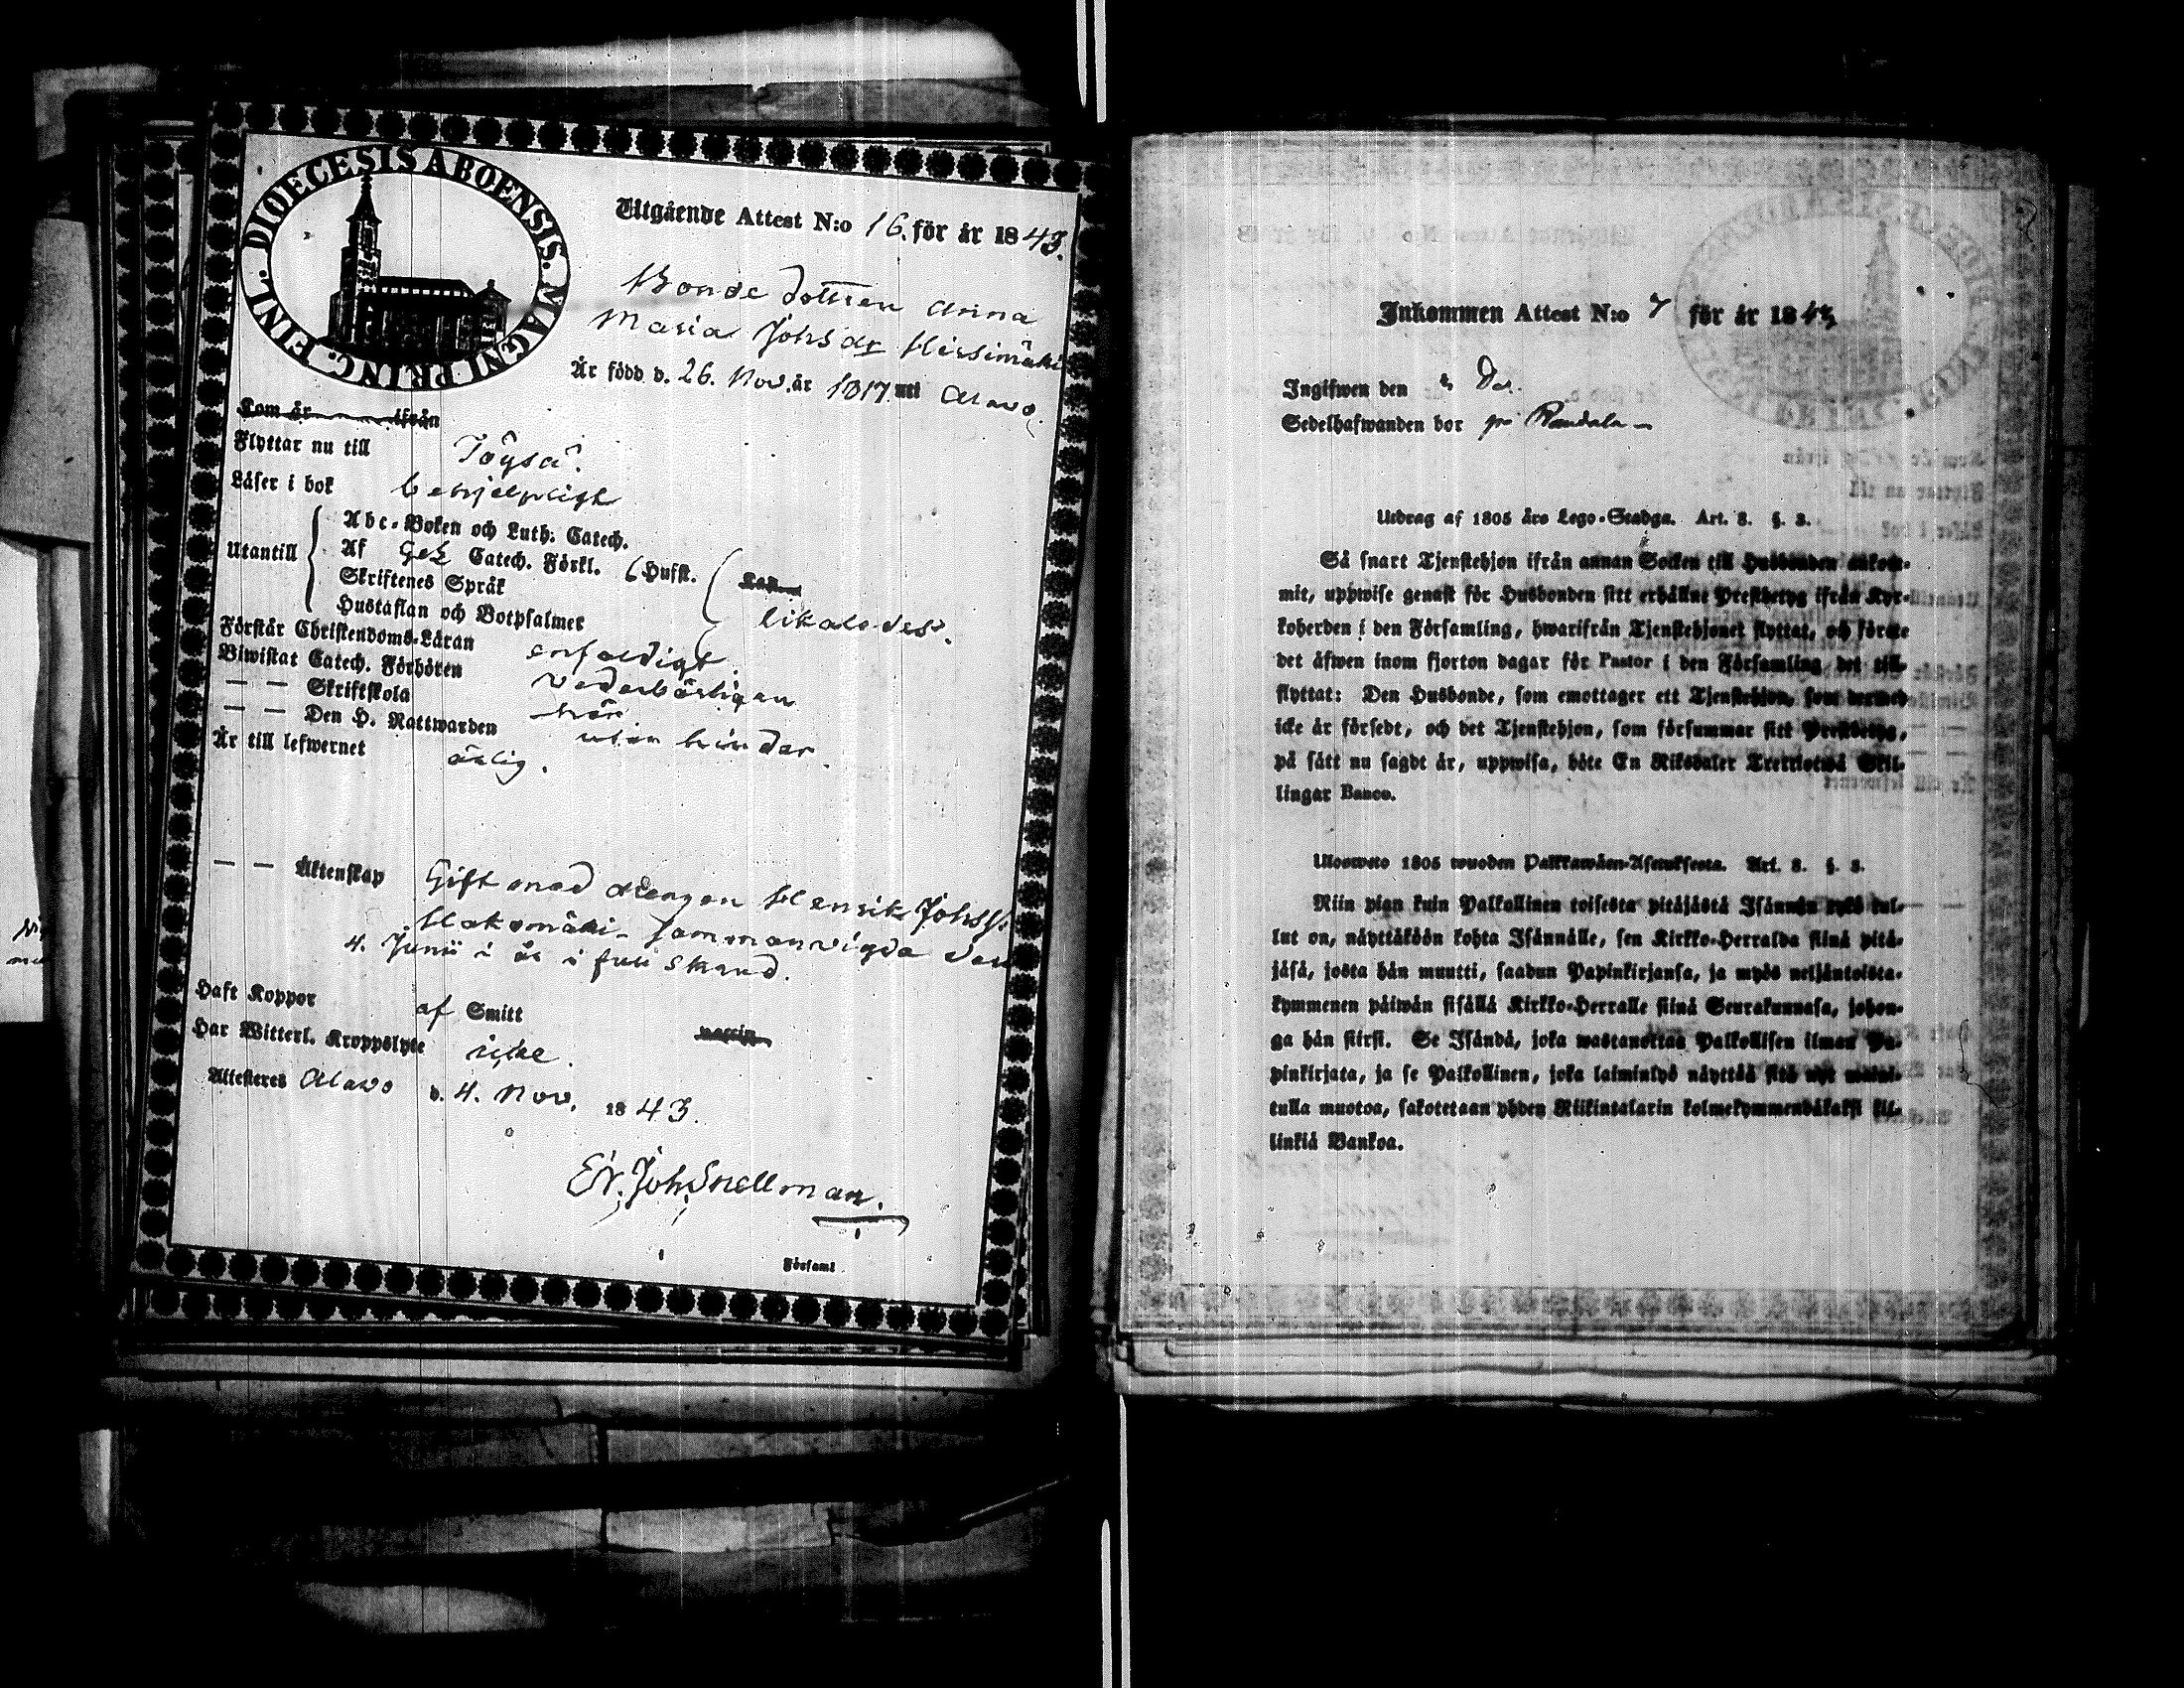 DIOECESIS ABOENSIS. MAGNI PRINC. FINL.
Utgående Attest N:o 16. för år 1843.
Bonde dottren Anna
Maria Johsdr Hirsimäki
Är född d. 26. Nov. år 1817 uti Alavo.
Kom år ifrån
Flyttar nu till Töysä.
Läser i bok behjelpligt
Utantill
Abc-Boken och Luth. Catech.
Af Catech. Förkl. Husft.
Skriftenes Språk
Hustaflan och Botpsalmer
likaledes.
Förstår Christendoms-Läran enfaldigt.
Biwistat Catech. Förhören vederbörligen
— — Skriftskola
— — Den H. Nattwarden utan hinder.
Är till lefwernet ärlig.
— — Äktenskap Gift med drengen Henrik Johss.
Hakomäki - sammanvigda den
4. Junii i år i stånd.
Haft Koppor af Smitt
Har Witterl. Kroppslyte icke.
Attesteres Alavo d. 4. Nov. 1843.
Er. Joh. Snellman.
Församl
Inkommen Attest N:o 7 för år 1843
Ingifwen den
Sedelhafwanden bor på Rantala
Utdrag af 1805 års Lego-Stadga. Art. 8. §. 3.
Så snart Tjenstehjon ifrån annan Socken till Husbonden ankom-
mit, uppwise genast för Husbonden sitt erhållne Prestbetyg ifrån Kyr-
koherden i den Församling, hwarifrån Tjenstehjonet flyttat, och förete
det äfwen inom fjorton dagar för Pastor i den Församling det till-
flyttat: Den Husbonde, som emottager ett Tjenstehjon, som dermed
icke är försedt, och det Tjenstehjon, som försummar sitt Prestbetyg,
på sätt nu sagdt är, uppwisa, böte En Riksdaler Trettiotwå Skil-
lingar Banco.
Ulosweto 1805 wuoden Palkkawäen-Asetuksesta. Art. 8. §. 3.
Niin pian kuin Palkollinen toisesta pitäjästä Isännän tykö tul-
lut on, näyttäköön kohta Isännälle, sen Kirkko-Herralda siinä pitä-
jäsä, josta hän muutti, saadun Papinkirjansa, ja myös neljäntoista-
kymmenen päiwän sisällä Kirkko-Herralle siinä Seurakunnasa, johon-
ga hän siirsi. Se Isändä, joka wastanottaa Palkollisen ilman Pa-
pinkirjata, ja se Palkollinen, joka laiminlyö näyttää sitä nyt maini-
tulla muotoa, sakotetaan yhden Riikintalarin kolmekymmendäkaksi kil-
linkiä Bankoa.